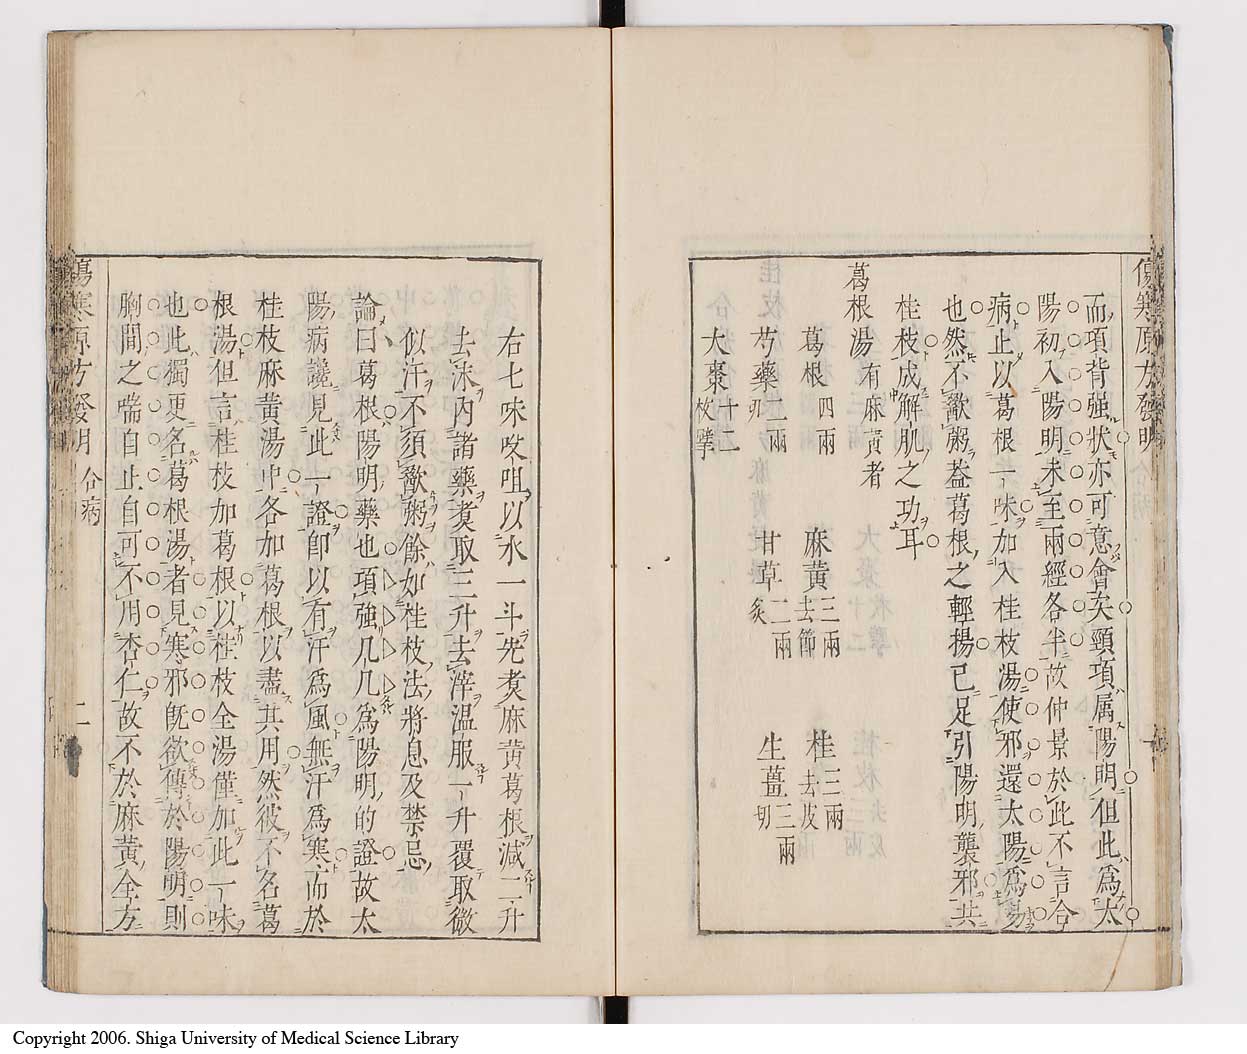 傷寒原方發明
而項背強狀亦可意會矣頸項属陽明但此爲太
陽初入陽明未至兩經各半故仲景於此不言合
病止以葛根一味加入桂枝湯使邪還太陽爲易
也然不歠粥葢葛根之輕揚已足引陽明襲邪共
桂枝成解肌之功耳
葛根湯 有麻黃者
葛根四兩 麻黃三兩去節 桂三兩去皮
芍藥二兩切 甘草二兩炙 生薑三兩切
大棗十二枚擘
右七味㕮咀以水一斗先煑麻黃葛根減二升
去沫內諸藥煑取三升去滓温服一升覆取微
似汗不須歠粥餘如桂枝法將息及禁忌
論曰葛根陽明藥也項強几几爲陽明的證故太
陽病纔見此一證卽以有汗爲風無汗爲寒而於
桂枝麻黃湯中各加葛根以盡其用然彼不名葛
根湯但言桂枝加葛根以桂枝全湯僅加此一味
也此獨更名葛根湯者見寒邪旣欲傳於陽明則
胸間之喘自止自可不用杏仁故不於麻黃全方
傷寒原方發明 合病 二
Copyright 2006. Shiga University of Medical Science Library